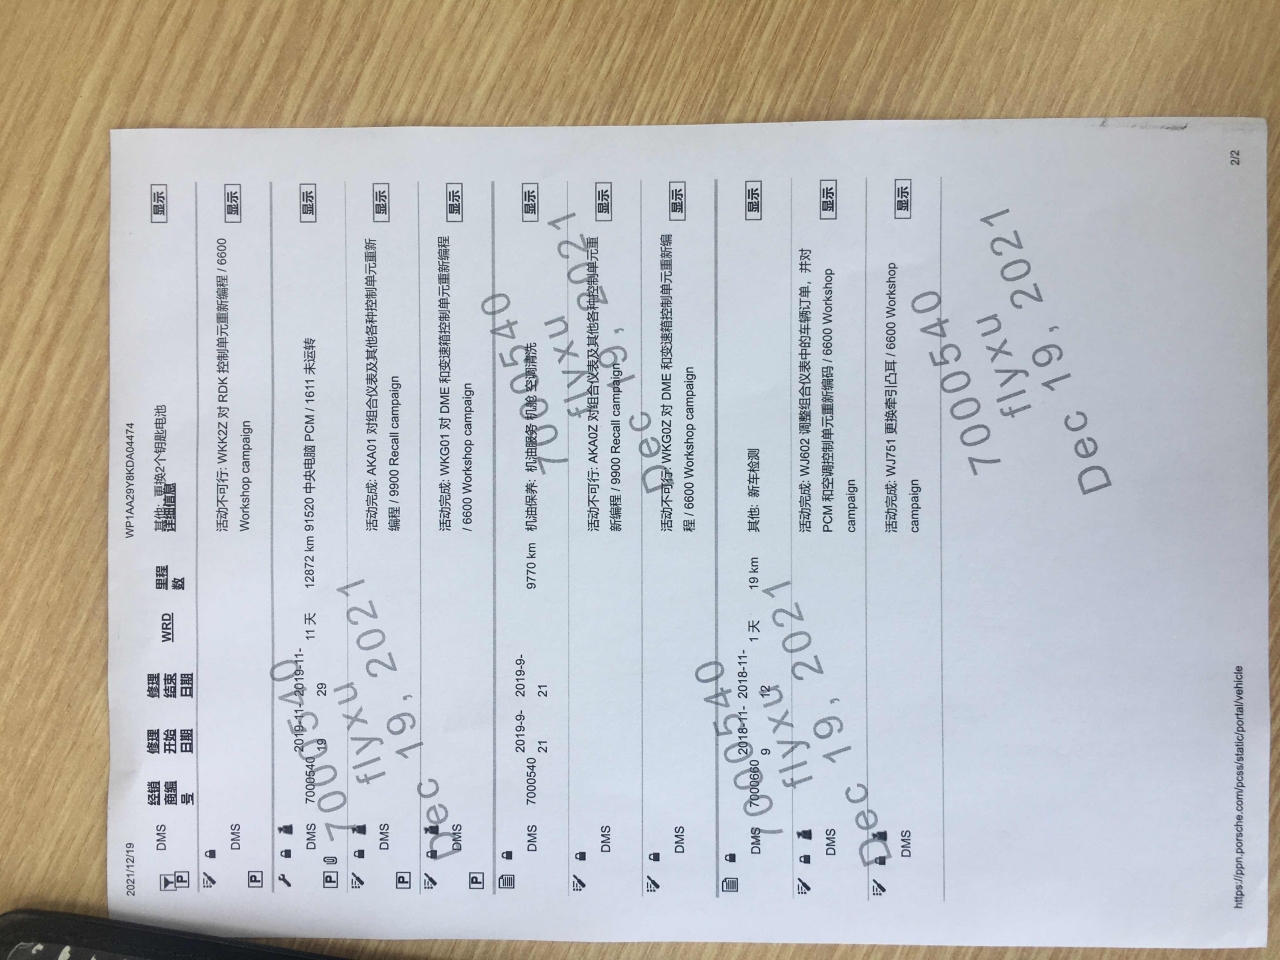 2021/12/19
WP1AA29Y8KDA04474
经销商编号
修理开始日期
修理结束日期
WRD
里程数
详细信息
DMS
其他: 更换2个钥匙电池
显示
P
DMS
活动不可行: WKK2Z 对 RDK 控制单元重新编程 / 6600
Workshop campaign
显示
P
DMS
7000540
2019-11-19
2019-11-29
11 天
12872 km
91520 中央电脑 PCM / 1611 未运转
显示
P
DMS
活动完成: AKA01 对组合仪表及其他各种控制单元重新
编程 / 9900 Recall campaign
显示
P
DMS
活动完成: WKG01 对 DME 和变速箱控制单元重新编程
/ 6600 Workshop campaign
显示
P
DMS
7000540
2019-9-21
2019-9-21
9770 km
机油保养: 机油服务 机舱 空调清洗
显示
DMS
活动不可行: AKA0Z 对组合仪表及其他各种控制单元重
新编程 / 9900 Recall campaign
显示
DMS
活动不可行: WKG0Z 对 DME 和变速箱控制单元重新编
程 / 6600 Workshop campaign
显示
DMS
7000660
2018-11-9
2018-11-12
1 天
19 km
其他: 新车检测
显示
DMS
活动完成: WJ602 调整组合仪表中的车辆订单，并对
PCM 和空调控制单元重新编码 / 6600 Workshop
campaign
显示
DMS
活动完成: WJ751 更换牵引凸耳 / 6600 Workshop
campaign
显示
7000540
flyxu
Dec 19, 2021
7000540
flyxu
Dec 19, 2021
7000540
flyxu
Dec 19, 2021
7000540
flyxu
Dec 19, 2021
https://ppn.porsche.com/pcss/static/portal/vehicle
2/2